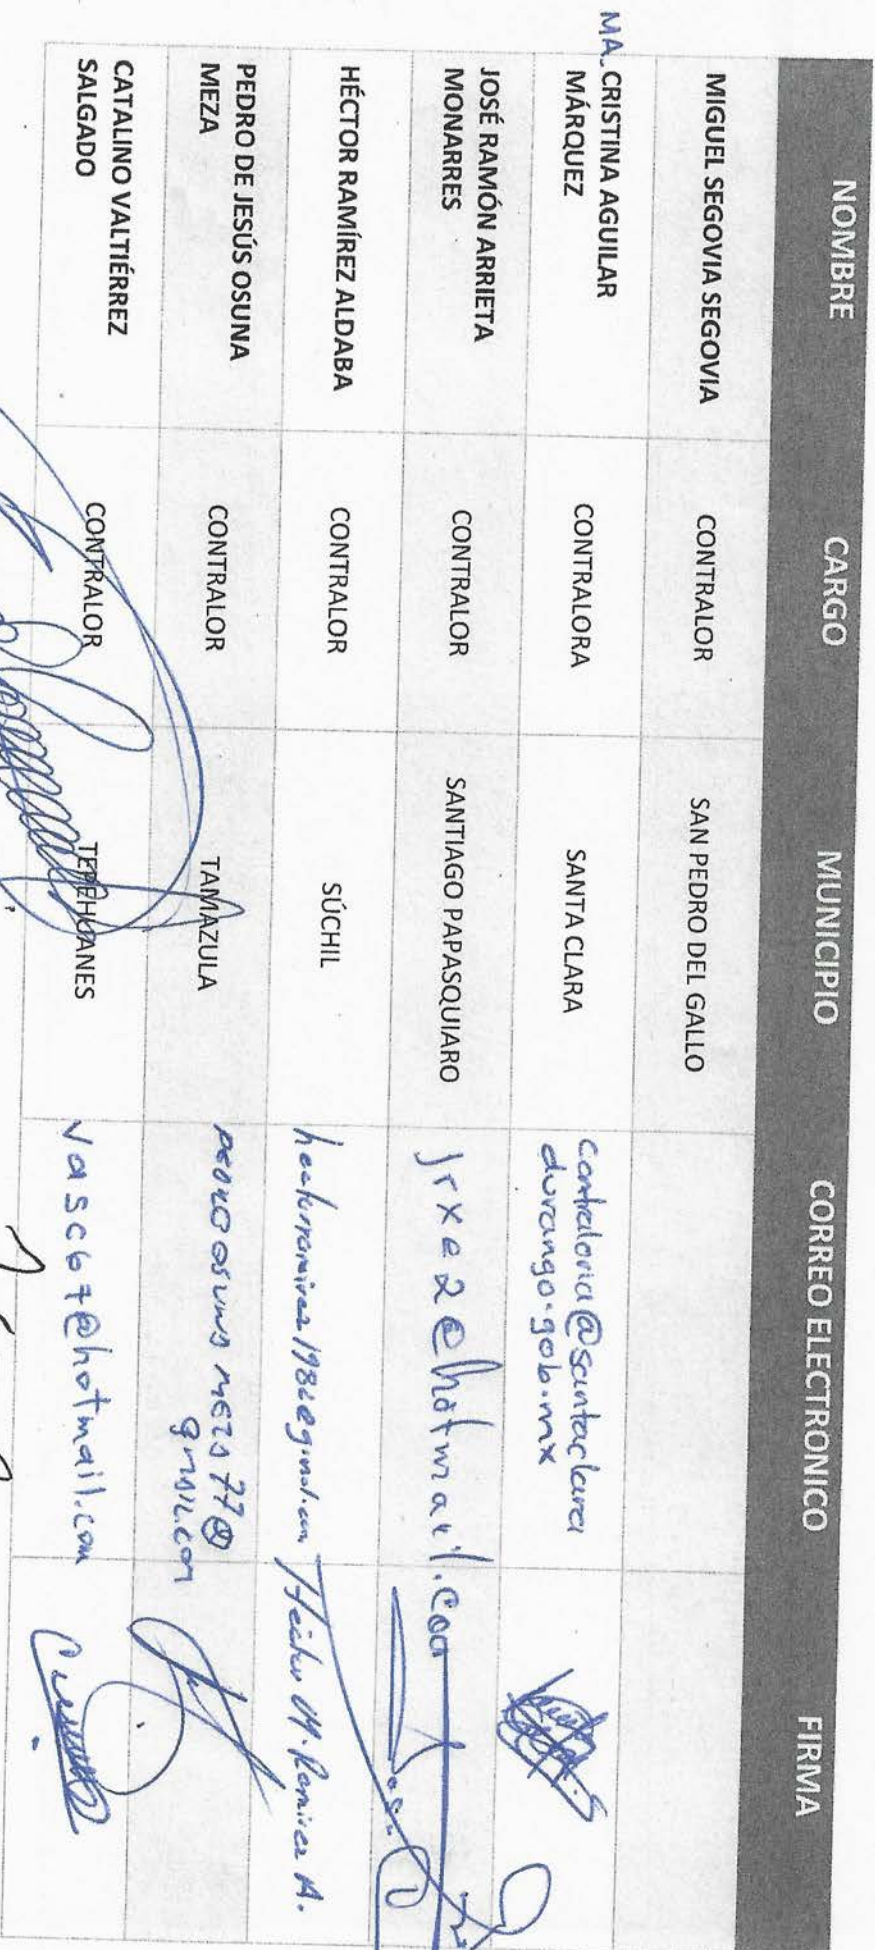 NOMBRE CARGO MUNICIPIO CORREO ELECTRONICO FIRMA
MIGUEL SEGOVIA SEGOVIA CONTRALOR SAN PEDRO DEL GALLO
MA. CRISTINA AGUILAR
MÁRQUEZ CONTRALORA SANTA CLARA contraloria@santaclara
durango.gob.mx
JOSÉ RAMÓN ARRIETA
MONARRES CONTRALOR SANTIAGO PAPASQUIARO
HÉCTOR RAMÍREZ ALDABA CONTRALOR SÚCHIL Héctor M. Ramírez A.
PEDRO DE JESÚS OSUNA
MEZA CONTRALOR TAMAZULA PEDRO OSUNA MEZA 77@
gmail.com
CATALINO VALTIÉRREZ
SALGADO CONTRALOR TEPEHUANES vasc67@hotmail.com